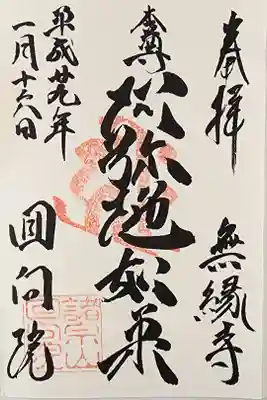 奉拝
無縁寺
本尊
阿弥陀如来
平成廿九年
一月十六日
回向院